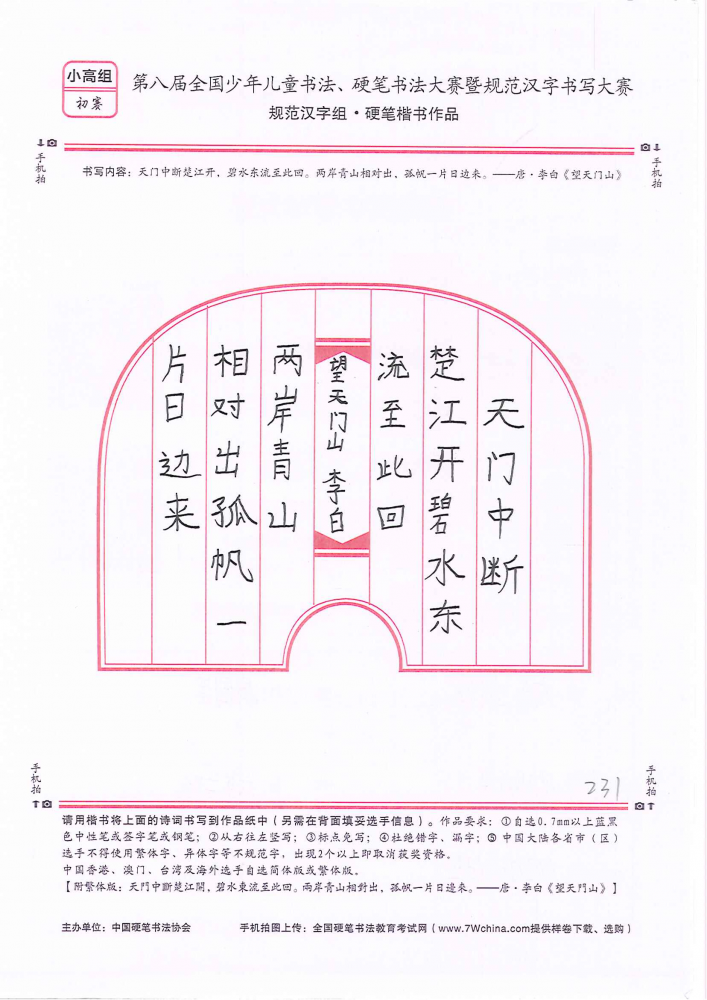 小高组
初赛
第八届全国少年儿童书法、硬笔书法大赛暨规范汉字书写大赛
规范汉字组·硬笔楷书作品
手机拍
手机拍
书写内容：天门中断楚江开，碧水东流至此回。两岸青山相对出，孤帆一片日边来。——唐·李白《望天门山》
天门中断
楚江开碧水东
流至此回
望天门山 李白
两岸青山
相对出孤帆一
片日边来
231
手机拍
手机拍
请用楷书将上面的诗词书写到作品纸中（另需在背面填妥选手信息）。作品要求：①自选0.7mm以上蓝黑
色中性笔或签字笔或钢笔；②从右往左竖写；③标点免写；④杜绝错字、漏字；⑤中国大陆各省市（区）
选手不得使用繁体字、异体字等不规范字，出现2个以上即取消获奖资格。
中国香港、澳门、台湾及海外选手自选简体版或繁体版。
【附繁体版：天門中斷楚江開，碧水東流至此回。兩岸青山相對出，孤帆一片日邊來。——唐·李白《望天門山》】
主办单位：中国硬笔书法协会
手机拍图上传：全国硬笔书法教育考试网（www.7Wchina.com提供样卷下载、选购）